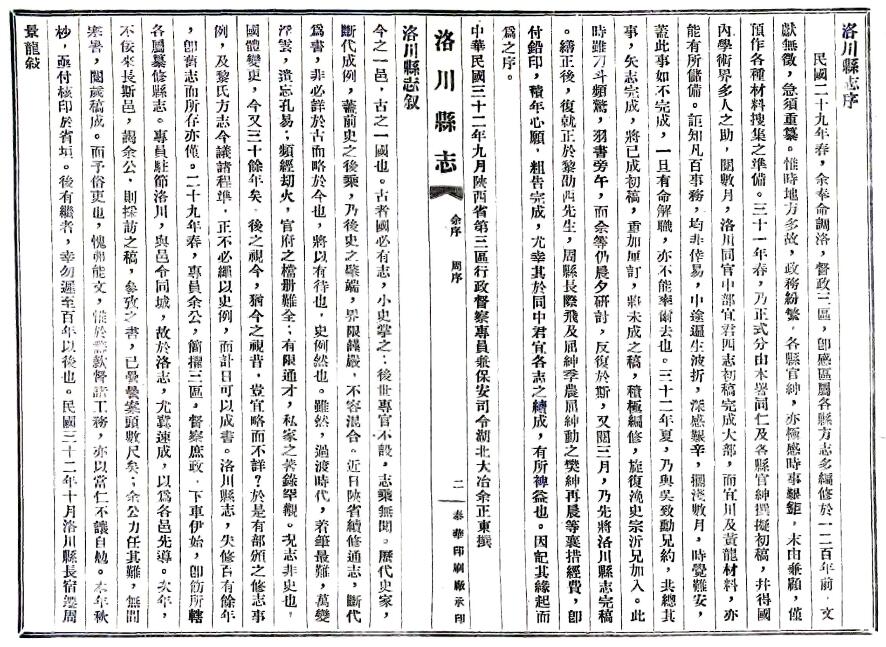 洛川縣志序
民國二十九年春，余奉命調洛，督政三區，卽感區屬各縣方志多編修於一二百年前，文
獻無徵，急須重纂。惟時地方多故，政務紛繁，各縣官紳，亦極感時事艱鉅，末由兼顧，僅
預作各種材料搜集之準備。三十一年春，乃正式分由本署同仁及各縣官紳撰擬初稿，幷得國
內學術界多人之助，閱數月，洛川同官中部宜君四志初稿完成大部，而宜川及黃龍材料，亦
能有所儲備。詎知凡百事務，均非倖易，中途遍生波折，深感艱辛，擱淺數月，時覺難安，
蓋此事如不完成，一旦有命解職，亦不能率爾去也。三十二年夏，乃與吳致勳兄約，共總其
事，矢志完成，將已成初稿，重加厘訂，將未成之稿，積極編修，旋復浼史宗沂兄加入。此
時雖刁斗頻驚，羽書旁午，而余等仍晨夕研討，反復於斯，又閱三月，乃先將洛川縣志完稿
。繕正後，復就正於黎劭西先生，周縣長際飛及屈紳季農屈紳動之樊紳再晨等襄措經費，卽
付鉛印，積年心願，粗告完成，尤幸其於同中君宜各志之續成，有所裨益也。因記其緣起而
爲之序。
中華民國三十二年九月陝西省第三區行政督察專員兼保安司令湖北大冶余正東撰
洛川縣志 余序 周序 二 泰華印刷廠承印
洛川縣志叙
今之一邑，古之一國也。古者國必有志，小史掌之；後世專官不設，志乘無聞。歷代史家，
斷代成例，蓋前史之後乘，乃後史之肇端，界限謹嚴，不容混合。近日陝省續修通志，斷代
爲書，非必詳於古而略於今也，將以有待也，史例然也。雖然，過渡時代，着筆最難，萬變
浮雲，遺忘孔易；頻經刧火，官府之檔册難全；有限通才，私家之著錄罕觀。况志非史也，
國體變更，今又三十餘年矣，後之視今，猶今之視昔，豈宜略而不詳？於是有部頒之修志事
例，及黎氏方志今議諸程準，正不必繩以史例，而計日可以成書。洛川縣志，失修百有餘年
，卽舊志而所存亦僅。二十九年春，專員余公，簡擢三區，督察庶政，下車伊始，卽飭所轄
各屬纂修縣志。專員駐節洛川，與邑令同城，故於洛志，尤冀速成，以爲各邑先導。次年，
不佞來長斯邑，謁余公，則採訪之稿，參攷之書，已疊疊案頭數尺矣；余公力任其難，無間
寒暑，閱歲稿成。而予俗吏也，愧弗能文，惟於籌款督訟工務，亦以當仁不讓自勉。本年秋
杪，亟付核印於省垣。後有繼者，幸勿遲至百年以後也。民國三十二年十月洛川縣長宿遷周
景龍敍